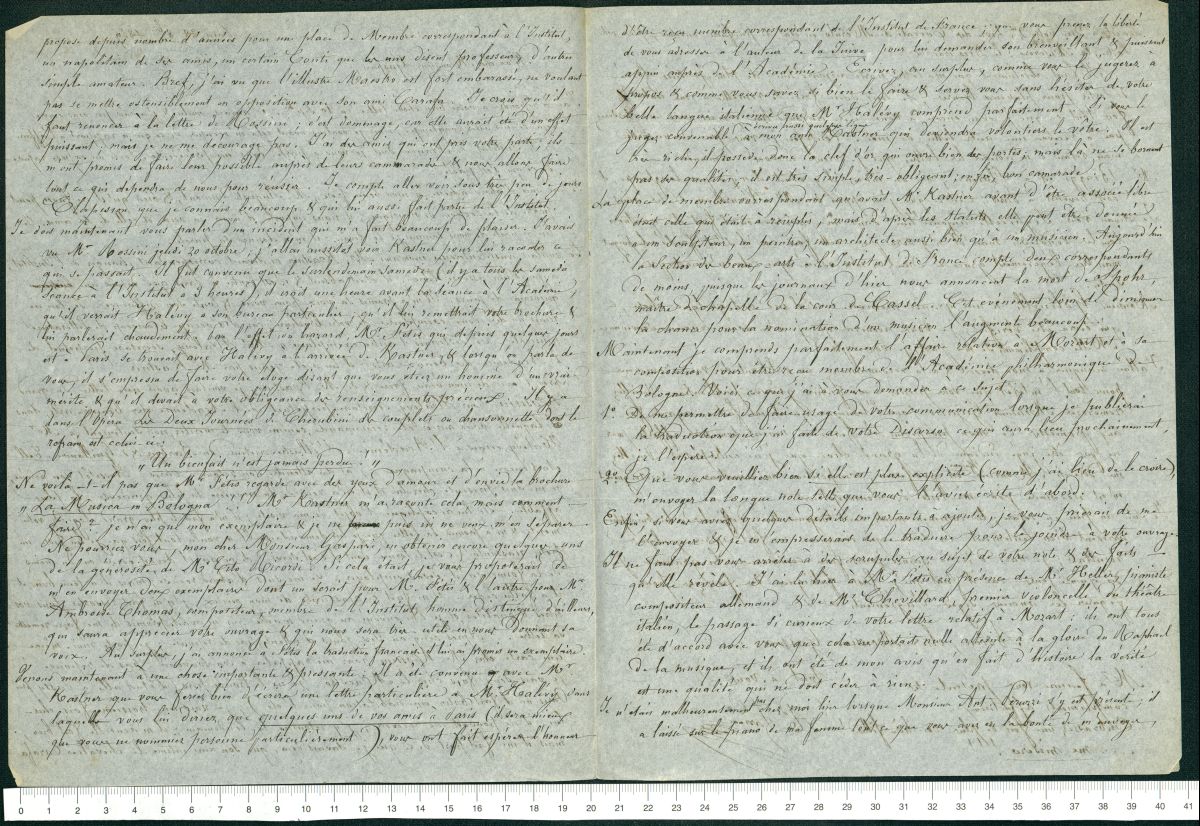 propose depuis nombre d'années pour une place de Membre correspondant à l'Institut,
un napolitain de ses amis, un certain Conti que les uns disent professeur, d'autres
simple amateur. Bref, j'ai vu que l'illustre Maestro est fort embarassé, ne voulant
pas se mettre ostensiblement en opposition avec son ami Carafa. Je crois qu'il
faut renoncer à la lettre de Rossini; c'est dommage, car elle aurait été d'un effet
puissant, mais je ne me décourage pas. J'ai des amis qui ont pris votre parti; ils
m'ont promis de faire leur possible auprès de leurs camarades & nous allons faire
tout ce qui dépendra de nous pour réussir. Je compte aller voir sous très peu de jours
Clapisson que je connais beaucoup & qui lui aussi fait partie de l'Institut.
Je dois maintenant vous parler d'un incident qui m'a fait beaucoup de plaisir. J'avais
vu Mr Rossini jeudi 20 octobre; j'allai aussitôt voir Kastner pour lui raconter ce
qui se passait. Il fut convenu que le surlendemain samedi (il y a tous les samedis
séance à l'Institut à 3 heures) il irait une heure avant la séance à l'Académie,
qu'il verrait Halévy à son bureau particulier, qu'il lui remettrait votre brochure &
lui parlerait chaudement. Par l'effet du hazard, Mr Fétis qui depuis quelques jours
est à Paris se trouvait avec Halévy à l'arrivée de Kastner, & lorsqu'on parla de
vous, il s'empressa de faire votre éloge disant que vous étiez un homme d'un vrai
mérite & qu'il devait à votre obligeance des renseignements précieux. Il y a
dans l'Opéra Les Deux Journées de Cherubini des couplets ou chansonnette dont le
refrain est celui-ci:
„Un bienfait n'est jamais perdu!"
Ne voilà-t-il pas que Mr Fétis regarde avec des yeux d'amour et d'envie la brochure
„La Musica in Bologna" Mr Kastner m'a raconté cela, mais comment
faire? je n'ai que mon exemplaire & je ne puis ni ne veux m'en séparer.
Ne pourriez vous, mon cher Monsieur Gaspari, en obtenir encore quelques uns
de la générosité de Mr Tito Ricordi. Si cela était, je vous proposerais de
m'en envoyer deux exemplaires dont un serait pour Mr Fétis & l'autre pour Mr
Ambroise Thomas, compositeur, membre de l'Institut, homme distingué d'ailleurs,
qui saura apprécier votre ouvrage & qui nous sera très utile en nous donnant sa
voix. Au surplus, j'ai annoncé à Fétis la traduction française & lui ai promis un exemplaire.
Venons maintenant à une chose importante & pressante: Il a été convenu avec Mr
Kastner que vous feriez bien d'écrire une lettre particulière à Mr Halévy dans
laquelle vous lui diriez que quelques uns de vos amis à Paris (il sera mieux
que vous ne nommiez personne particulièrement), vous ont fait espérer l'honneur
d'être reçu membre correspondant de l'Institut de France; que vous prenez la liberté
de vous adresser à l'auteur de la Juive pour lui demander son bienveillant & puissant
appui auprès de l'Académie. Ecrivez, au surplus, comme vous le jugerez à
propos & comme vous savez si bien le faire & servez vous sans hésiter de votre
belle langue italienne que Mr Halévy comprend parfaitement. Si vous le
jugez convenable, écrivez aussi quelques lignes à mon ami Kastner qui deviendra volontiers le vôtre. Il est
très riche, il possède donc la clef d'or qui ouvre bien des portes, mais là ne se bornent
pas ses qualités, il est très simple, très-obligeant, enfin, bon camarade.
La place de membre correspondant qu'avait Mr Kastner avant d'être associé libre
était celle qui était à remplir, mais d'après les statuts elle peut être donnée
à un sculpteur, un peintre, un architecte aussi bien qu'à un musicien. Aujourd'hui
la section des beaux-arts à l'Institut de France compte deux correspondants
de moins, puisque les journaux d'hier nous annoncent la mort de Spohr
maître de chapelle de la cour de Cassel. Cet évènement, loin de diminuer
la chance pour la nomination d'un musicien l'augmente beaucoup.
Maintenant je comprends parfaitement l'affaire relative à Mozart et à sa
composition pour être reçu membre de l'Académie philharmonique de
Bologne. Voici ce que j'ai à vous demander à ce sujet;
1º De me permettre de faire usage de votre communication lorsque je publierai
la traduction que j'ai faite de votre Discorso ce qui aura lieu prochainement,
je l'espère.
2º Que vous veuilliez bien si elle est plus explicite (comme j'ai lieu de le croire)
m'envoyer la longue note telle que vous l'aviez écrite d'abord.
Enfin, si vous aviez quelques détails importants à ajouter, je vous prierais de me
l'envoyer & je m'empresserais de le traduire pour le joindre à votre ouvrage.
Il ne faut pas vous arrêter à des scrupules au sujet de votre note & des faits
qu'elle révèle. J'ai lu hier à Mr Fétis en présence de Mr Heller, pianiste
compositeur allemand & de Mr Chevillard, premier violoncelle du théâtre
italien, le passage si curieux de votre lettre relatif à Mozart; ils ont tous
été d'accord avec vous que cela ne portait nulle atteinte à la gloire du Raphael
de la musique, et ils ont été de mon avis qu'en fait d'histoire la vérité
est une qualité qui ne doit céder à rien.
Je n'étais malheureusement pas chez moi hier lorsque Monsieur Ant. Peruzzi s'y est présenté; il
a laissé sur le piano de ma femme tout ce que vous avez eu la bonté de m'envoyer,